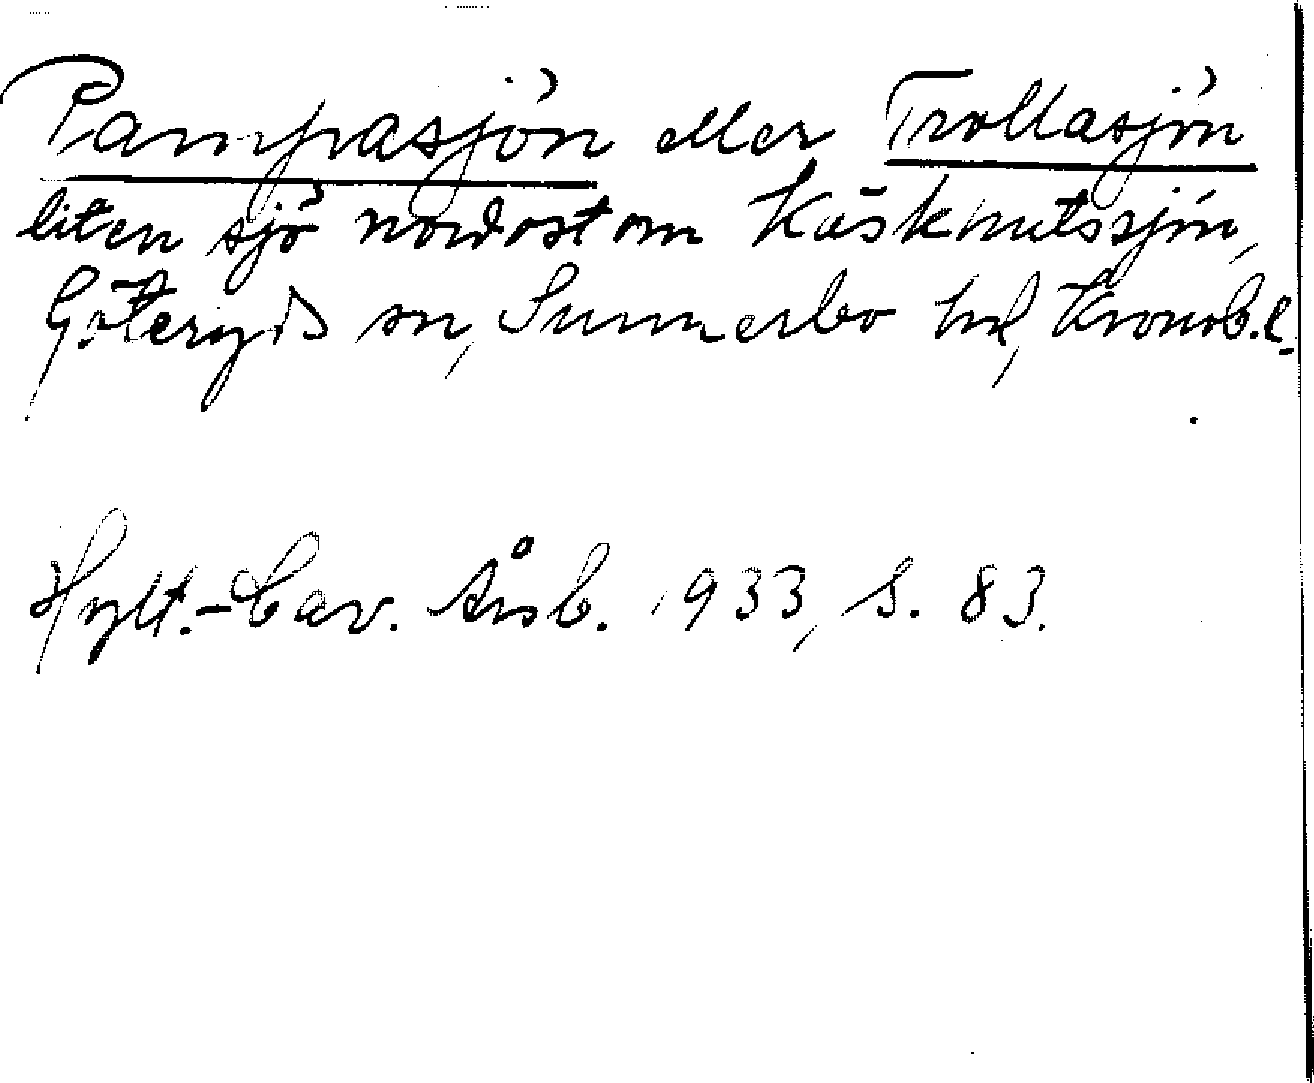 Pampasjön eller Trollasjön
liten sjö nordost om Käsknutssjön,
Göteryds sn, Sunnerbo hd, Kronob. l.
Hylt.-Cav. Årsb. 1933, S. 83.